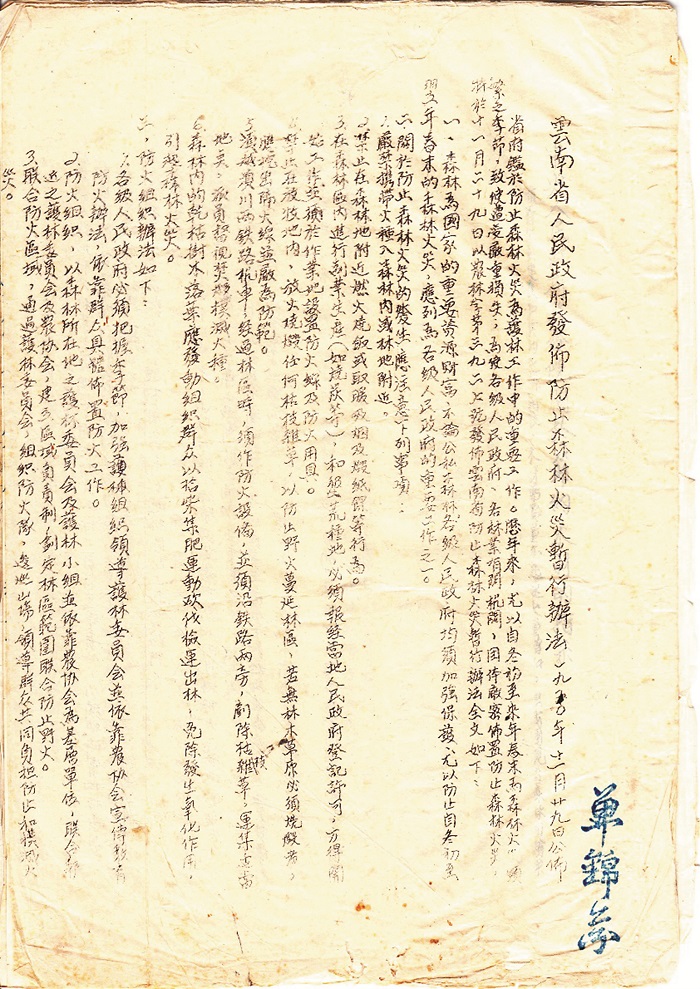 雲南省人民政府發佈防止森林火災暫行辦法 一九五〇年十一月廿九日公佈
省府鑑於防止森林火災為護林工作中的重要工作。歷年來，尤以自冬初至來年春末為森林火災頻
繁之季節，致使遭受嚴重損失，為使各級人民政府、各林業有關機關，固作嚴密佈置防止森林火災，
特於十一月二十九日以農林字第三九六二號發佈雲南省防止森林火災暫行辦法全文如下：
一、森林為國家的重要資源財富，不論公私森林各級人民政府均須加强保護，尤以防止自冬初至
翌年春末的森林火災，應列為各級人民政府的重要工作之一。
二、關於防止森林火災的發生，應注意下列事項：
1.嚴禁携帶火種入森林內或林地附近。
2.禁止在森林地附近燃火燒飯或取暖吸烟及燬紙錢等行為。
3.在森林區內進行副業生產（如燒炭等），和墾荒種地，必須報經當地人民政府登記許可，方得開
始工作，並須於作業地設置防火線及防火用具。
4.禁止在放牧地內，放火燒燬任何枯枝雜草，以防止野火蔓延林區，若無林木草原必須燒燬者，
應先開火線並嚴為防範。
5.滇越滇川兩鐵路機車，經過林區時，須作防火設備，並須沿鐵路兩旁，剷除枯殘雜草，運集適當
地点，派員監視焚燒撲滅火種。
6.森林內的乾枯樹木落葉應發動組織群众以拾柴集肥運動砍伐檢運出林，免除發生氧化作用，
引起森林火災。
三、防火組織辦法如下：
1.各級人民政府必須把握季節，加强護林組織領導護林委員會並依靠農协會宣傳教育
防火辦法，依靠群众具體佈置防火工作。
2.防火組織，以森林所在地之護林委員會及護林小組並依靠農协會為基層單位，聯合附
近之護林委員會及農协會，建立區域負責制，劃定林區範圍聯合防止野火。
3.聯合防火區域，通過護林委員會，組織防火隊，巡邏山佈，領導群众共同負担防止和撲滅火
災。
單錦